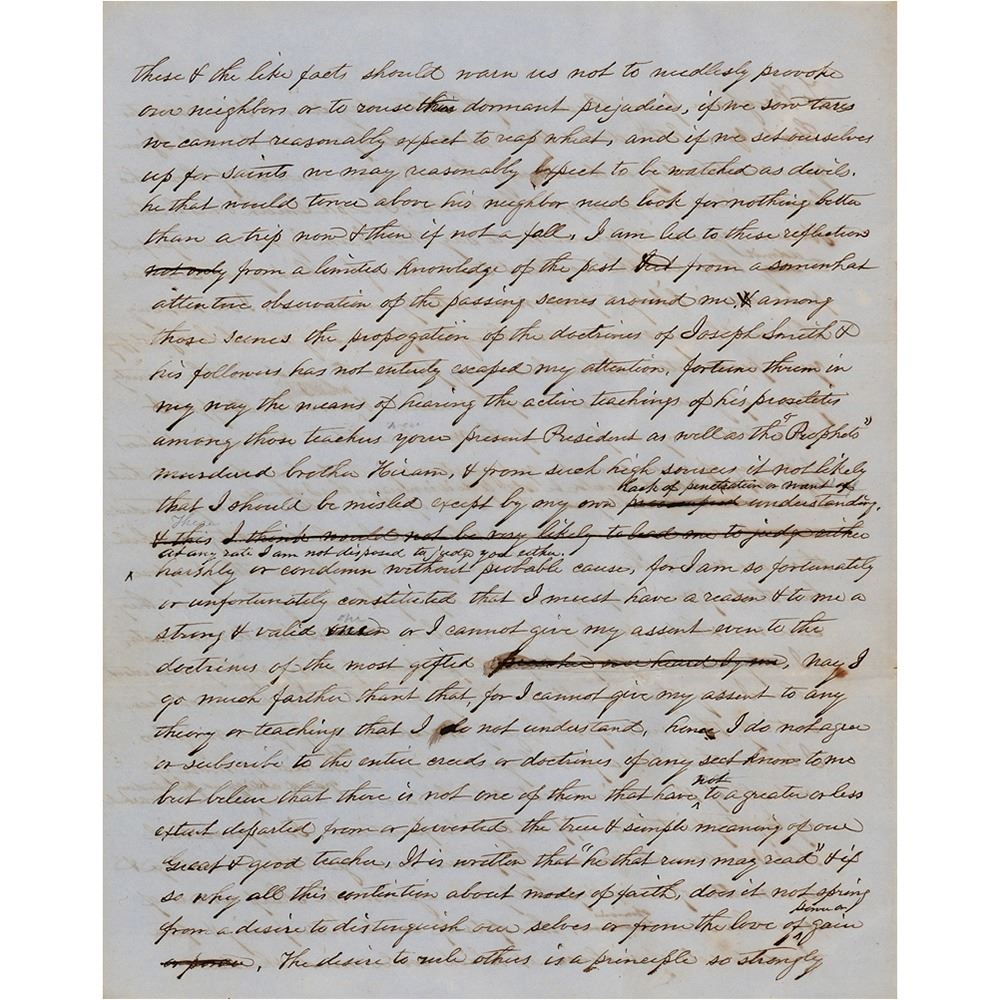 these & the like facts should warn us not to needlesly provoke
our neighbors or to rouse their dormant prejudices, if we sow tares
we cannot reasonably expect to reap wheat, and if we set ourselves
up for saints we may reasonably expect to be watched as devils.
he that would tower above his neighbor need look for nothing better
than a trip now & then if not a fall, I am led to these reflections
not only from a limited knowledge of the past but from a somewhat
attentive observation of the passing scenes around me, & among
those scenes the propogation of the doctrines of Joseph Smith &
his followers has not entirely escaped my attention, fortune threw in
my way the means of hearing the active teachings of his proseletes
among those teachers your present President as well as the "Prophets"
murdered brother Hiram, & from such high sources it not likely
lack of penetration or want of
that I should be misled except by my own understanding,
& this I think would not be very likely to lead me to judge either
at any rate I am not disposed to judge you either
harshly or condemn without probable cause, for I am so fortunately
or unfortunately constituted that I must have a reason & to me a
one
strong & valid or I cannot give my assent even to the
doctrines of the most gifted ever heard by me, nay I
go much farther thant that, for I cannot give my assent to any
theory or teachings that I do not understand, hence I do not agree
or subscribe to the entire creeds or doctrines of any sect known to me
not
but believe that there is not one of them that have to a greater or less
extent departed from or perverted the true & simple meaning of our
Great & good teacher, It is written that "he that runs may read" & if
so why all this contention about modes of faith, does it not spring
power or
from a desire to distinguish our selves or from the love of gain
or power, The desire to rule others is a principle so strongly